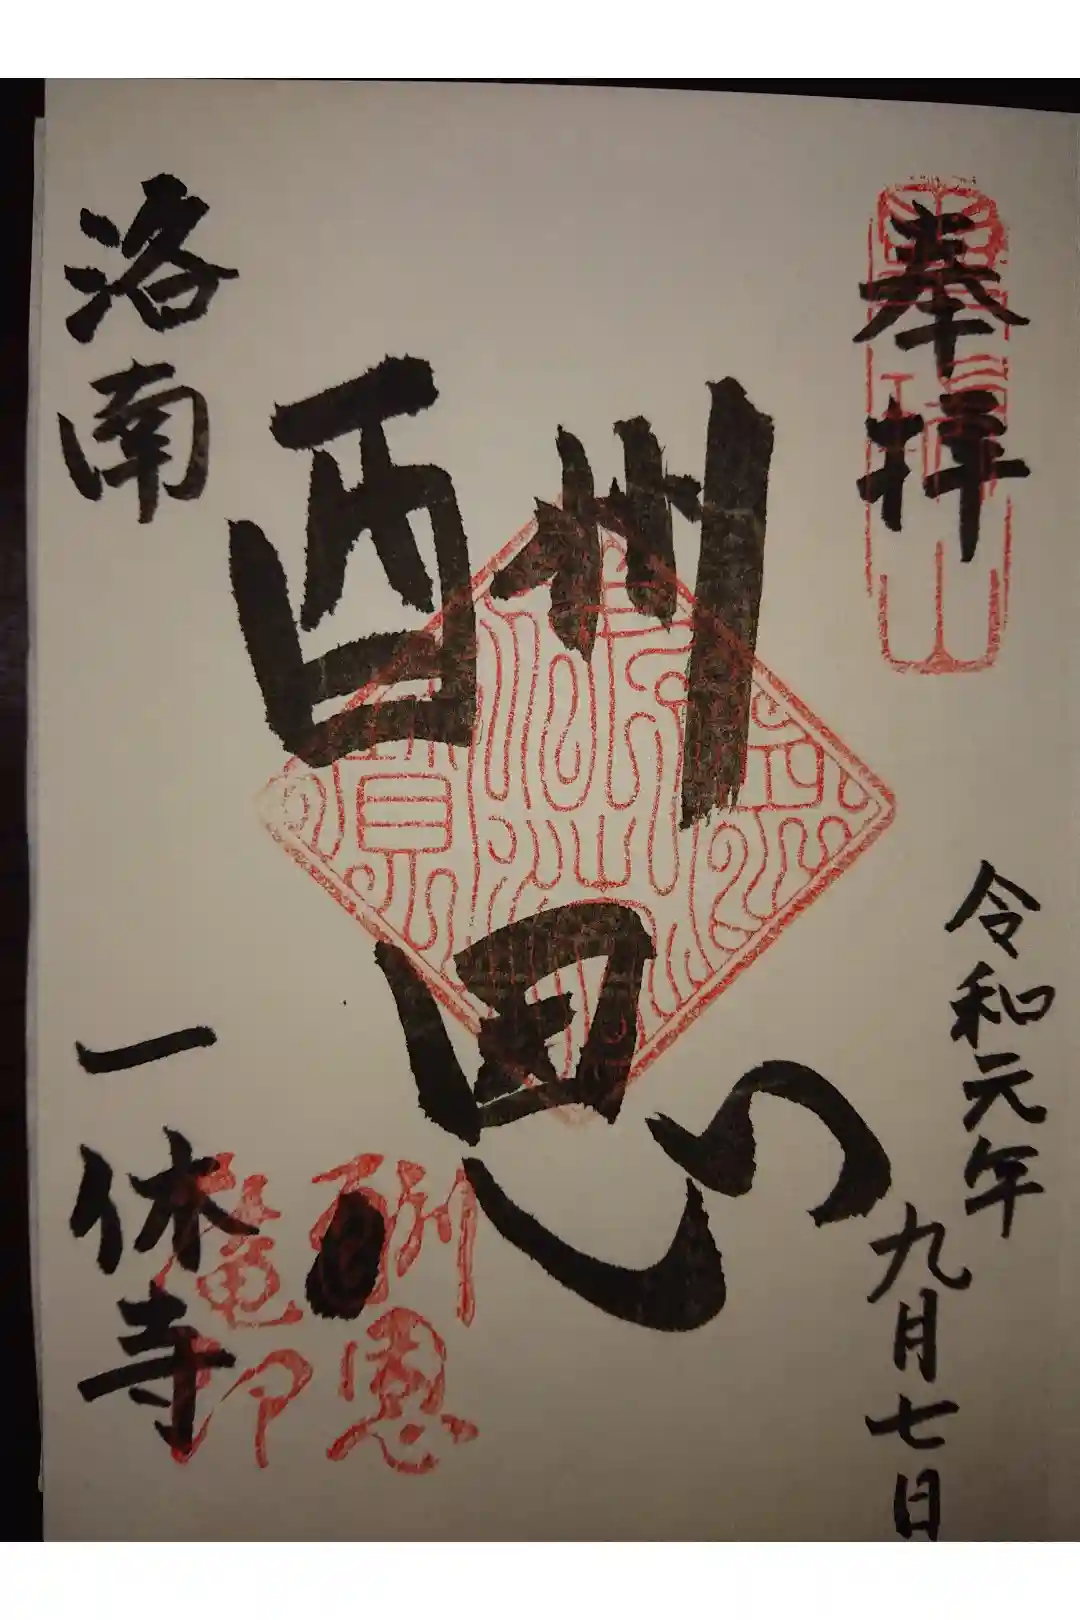 奉拝
令和元年
九月七日
酬恩
洛南
一休寺
酬恩
菴印